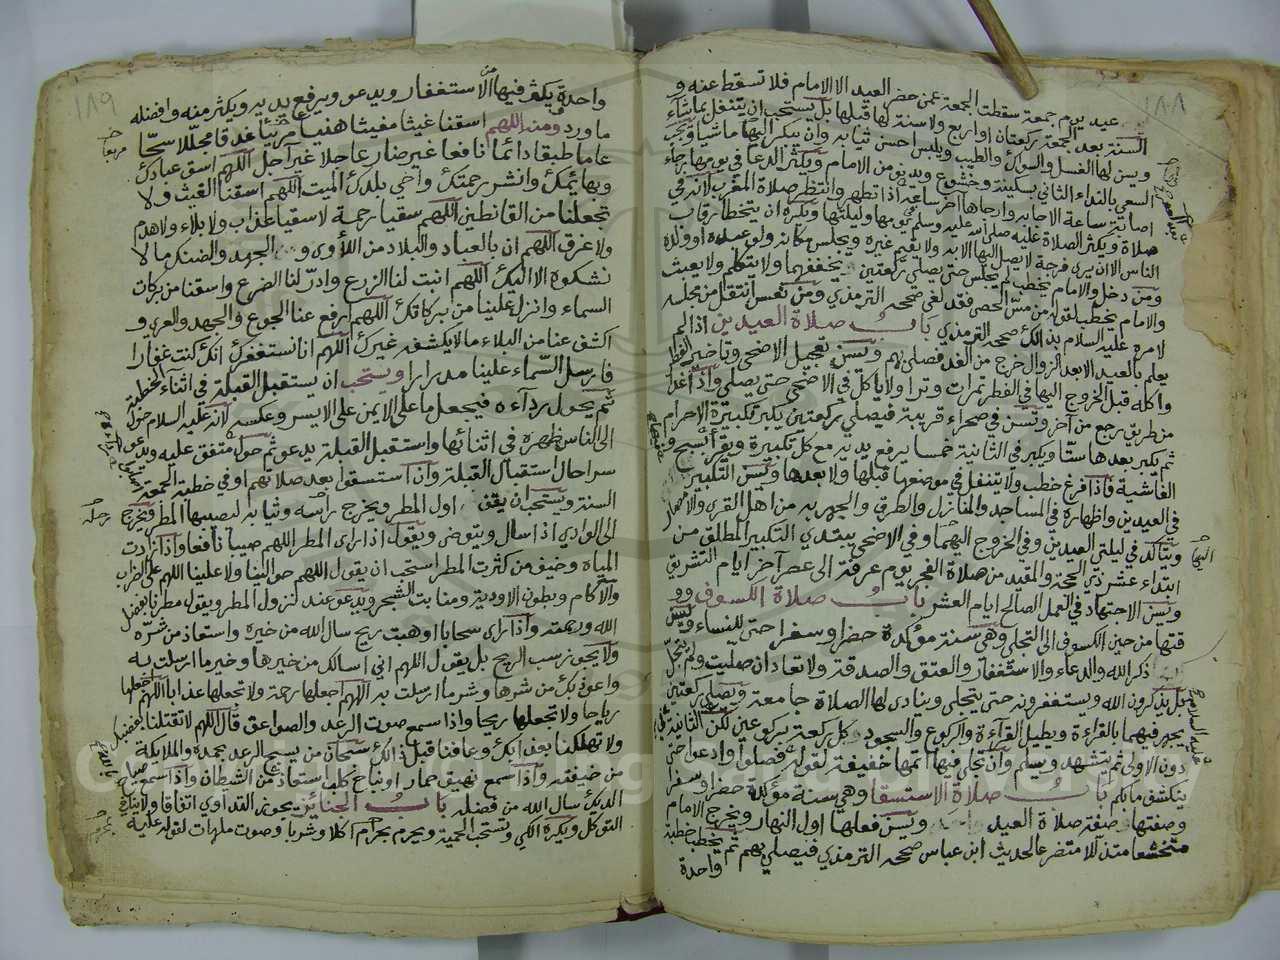 ١٨٨
عيد يوم جمعة سقطت الجمعة عمن حضر العيد الا الامام فلا تسقط عنه و
السنة بعد الجمعة ركعتان او اربع ولا سنة لها قبلها بل يستحب ان يتنفل بما شاء
ويسن لها الغسل والسواك والطيب ويلبس احسن ثيابه وان يبكر اليها ماشيا ويجب
السعي بالنداء الثاني بسكينة وخشوع ويدنو من الامام ويكثر الدعا في يومها رجاء
اصابة ساعة الاجابة وارجاها آخر ساعة اذا تطهر وانتظر صلاة المغرب لانه في
صلاة ويكثر الصلاة عليه صلى الله عليه وسلم في يومها وليلتها ويكره ان يتخطا رقاب
الناس الا ان يرى فرجة لا يصل اليها الا به ولا يقيم غيره ويجلس مكانه ولو عبده او ولده
ومن دخل والامام يخطب لم يجلس حتى يصلي ركعتين يخففهما ولا يتكلم ولا يعبث
والامام يخطب لقوله من مس الحصى فقد لغى صححه الترمذي ومن نعس انتقل من مجلسه
لامره عليه السلام بذلك صححه الترمذي باب صلاة العيدين اذا لم
يعلم بالعيد الا بعد الزوال خرج من الغد فصلى بهم ويسن تعجيل الاضحى وتاخير الفطر
واكله قبل الخروج اليها في الفطر تمرات وترا ولا ياكل في الاضحى حتى يصلي واذا غدا
من طريق رجع من آخر وتسن في صحراء قريبة فيصلي ركعتين يكبر تكبيرة الاحرام
ثم يكبر بعدها ستا ويكبر في الثانية خمسا يرفع يديه مع كل تكبيرة ويقرأ بسبح و
الغاشية فاذا فرغ خطب ولا يتنفل في موضعها قبلها ولا بعدها ويسن التكبير
في العيدين واظهاره في المساجد والمنازل والطرق والجهر به من اهل القرى والامصار
ويتأكد في ليلتي العيدين وفي الخروج اليهما وفي الاضحى يبتدي التكبير المطلق من
ابتداء عشر ذي الحجة والمقيد من صلاة الفجر يوم عرفة الى عصر آخر ايام التشريق
ويسن الاجتهاد في العمل الصالح ايام العشر باب صلاة الكسوف وو
قتها من حين الكسوف الى التجلي وهي سنة مؤكدة حضرا وسفرا حتى للنساء ويسن
ذكر الله والدعاء والاستغفار والعتق والصدقة ولا تعاد ان صليت ولم يتجل
بل يذكرون الله ويستغفرونه حتى يتجلى وينادى لها الصلاة جامعة ويصلي ركعتين
يجهر فيهما بالقراءة ويطيل القراءة والركوع والسجود كل ركعة بركوعين لكن الثانية
دون الاولى ثم يتشهد ويسلم وان تجلى فيها اتمها خفيفة لقوله فصلوا وادعوا حتى
ينكشف ما بكم باب صلاة الاستسقا وهي سنة مؤكدة حضرا وسفرا
وصفتها صفة صلاة العيد ويسن فعلها اول النهار ويخرج الامام
متخشعا متذللا متضرعا لحديث ابن عباس صححه الترمذي فيصلي بهم ثم يخطب خطبة
واحدة
١٨٩
واحدة يكثر فيها من الاستغفار ويدعو ويرفع يديه ويكثر منه وافضله
ما ورد ومنه اللهم اسقنا غيثا مغيثا هنيئا مريئا غدقا مجللا سحا
عاما طبقا دائما نافعا غير ضار عاجلا غير آجل اللهم اسق عبادك
وبهائمك وانشر رحمتك واحي بلدك الميت اللهم اسقنا الغيث ولا
تجعلنا من القانطين اللهم سقيا رحمة لا سقيا عذاب ولا بلاء ولا هدم
ولا غرق اللهم ان بالعباد والبلاد من اللأوى و الجهد والضنك ما لا
نشكوه الا اليك اللهم انبت لنا الزرع وادر لنا الضرع واسقنا من بركات
السماء وانزل علينا من بركاتك اللهم ارفع عنا الجوع والجهد والعري و
اكشف عنا من البلاء ما لا يكشفه غيرك اللهم انا نستغفرك انك كنت غفارا
فارسل السماء علينا مدرارا ويستحب ان يستقبل القبلة في اثناء الخطبة
ثم يحول رداءه فيجعل ما على الايمن على الايسر وعكسه لانه عليه السلام حول
الى الناس ظهره في اثنائها واستقبل القبلة يدعو ثم حول متفق عليه ويدعو
سرا حال استقبال القبلة وان استسقوا بعد صلاتهم او في خطبة الجمعة
السنة ويستحب ان يقف اول المطر ويخرج رأسه وثيابه ليصيبها المطر ويخرج
الى الوادي اذا سال ويتوضى ويقول اذا رأى المطر اللهم صيبا نافعا واذا زادت
المياه وخيف من كثرت المطر استحب ان يقول اللهم حوالينا ولا علينا اللهم على الظراب
والآكام وبطون الاودية ومنابت الشجر ويدعو عند نزول المطر ويقول مطرنا بفضل
الله ورحمته واذا رأى سحابا او هبت ريح سال الله من خيره واستعاذ من شره
ولا يجوز سب الريح بل يقول اللهم اني اسالك من خيرها وخير ما ارسلت به
واعوذ بك من شرها وشر ما ارسلت به اللهم اجعلها رحمة ولا تجعلها عذابا اللهم اجعلها
رياحا ولا تجعلها ريحا واذا سمع صوت الرعد والصواعق قال اللهم لا تقتلنا بغضبك
ولا تهلكنا بعذابك وعافنا قبل ذلك سبحان من يسبح الرعد بحمده والملايكة
من خيفته واذا سمع نهيق حمار او نباح كلب استعاذ من الشيطان واذا سمع صياح
الديك سال الله من فضله باب الجنائز يجوز التداوي اتفاقا ولا ينافي
التوكل ويكره الكي وتستحب الحمية ويحرم بحرام اكلا وشربا وصوت ملهات لقوله عليه